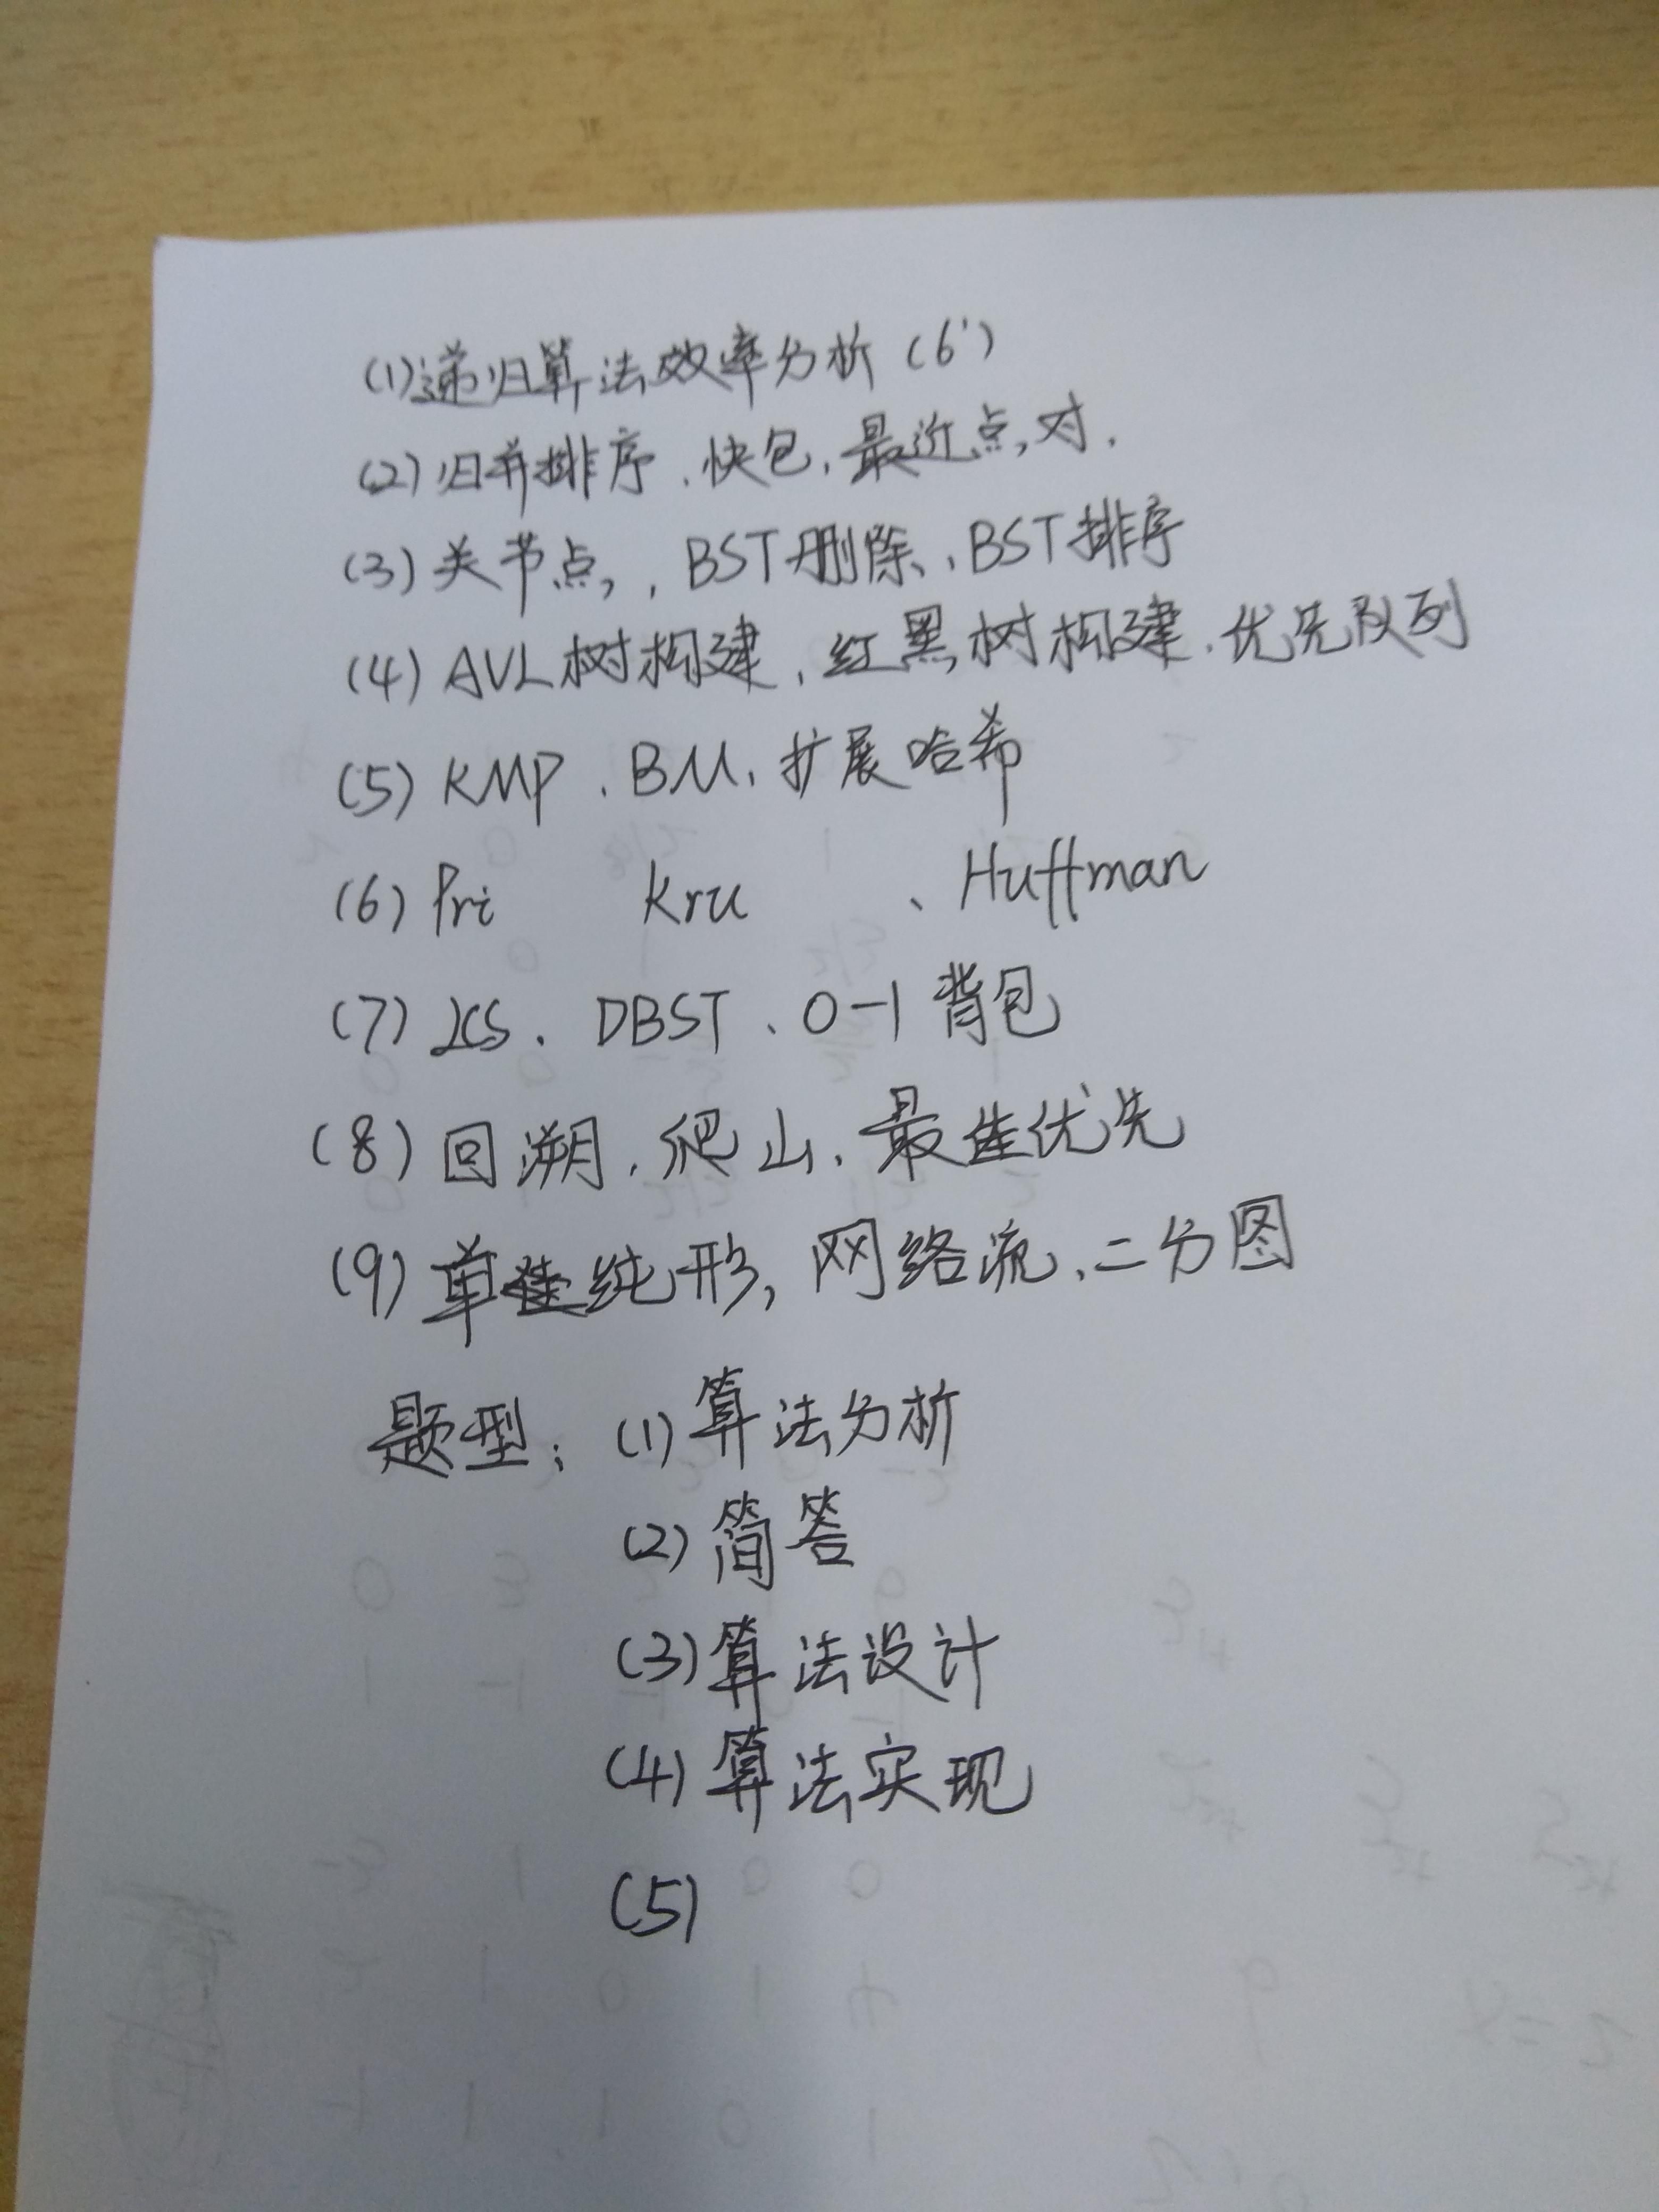 (1)递归算法效率分析(6')
(2)归并排序、快包、最近点对.
(3)关节点、BST删除、BST排序
(4)AVL树构建、红黑树构建、优先队列
(5)KMP、BM、扩展哈希
(6)Pri Kru 、Huffman
(7)LCS、DBST、0-1背包
(8)回溯、爬山、最佳优先
(9)单纯形,网络流、二分图
题型:(1)算法分析
(2)简答
(3)算法设计
(4)算法实现
(5)